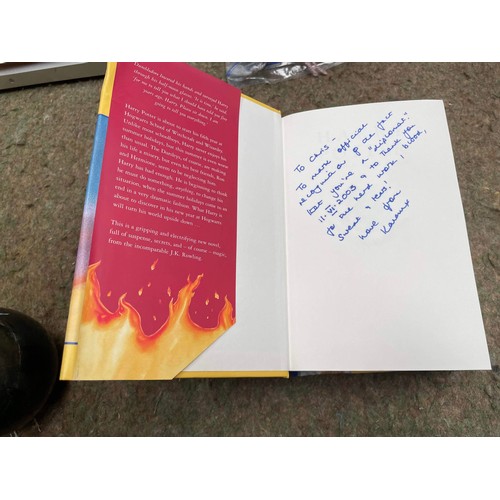 Dumbledore lowered his hands and surveyed Harry
through his half-moon glasses. 'It is time,' he said,
'for me to tell you what I should have told you five
years ago, Harry. Please sit down. I am
going to tell you everything.'
Harry Potter is about to start his fifth year at
Hogwarts School of Witchcraft and Wizardry.
Unlike most schoolboys, Harry never enjoys his
summer holidays, but this summer is even worse
than usual. The Dursleys, of course, are making
his life a misery, but even his best friends, Ron
and Hermione, seem to be neglecting him.
Harry has had enough. He is beginning to think
he must do something, anything, to change his
situation, when the summer holidays come to an
end in a very dramatic fashion. What Harry is
about to discover in his new year at Hogwarts
will turn his world upside down ...
This is a gripping and electrifying new novel,
full of suspense, secrets, and – of course – magic,
from the incomparable J.K. Rowling.
To Chris
To mark official
recognition of the fact
that you're a "diplomat"
11-VI-2003 & to thank you
for the hard work, blood,
sweat & tears!
Love from